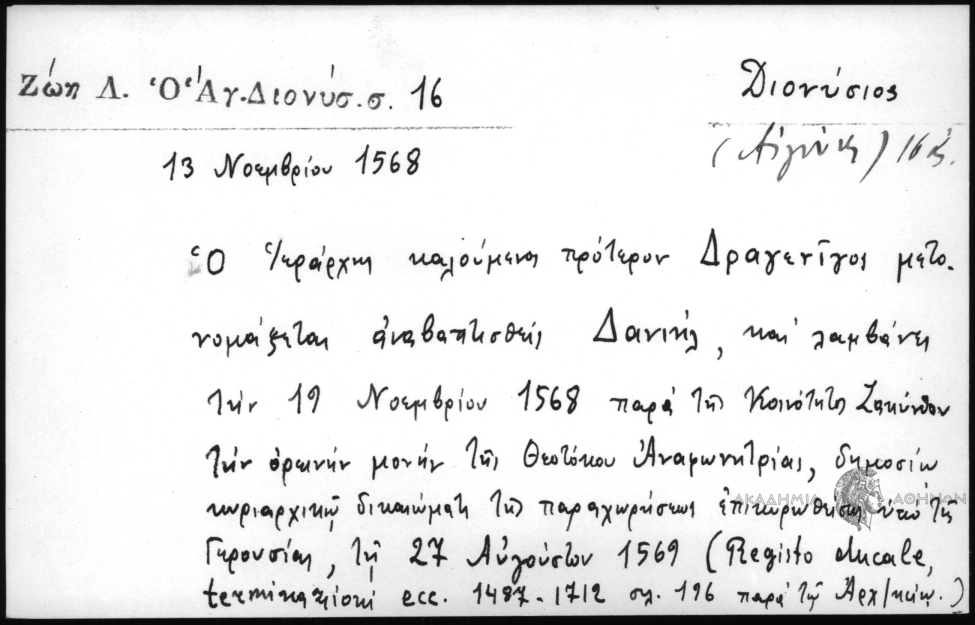 Ζώη Λ. Ὁ Ἁγ. Διονύσ. σ. 16
Διονύσιος
(Αἰγίνης) 16 α.
13 Νοεμβρίου 1568
Ὁ Ἱεράρχης καλούμενος πρότερον Δραγενῖγος μετο-
νομάζεται ἀναβαπτισθείς Δανιήλ, καί λαμβάνει
τήν 19 Νοεμβρίου 1568 παρά τῆς Κοινότητος Ζακύνθου
τήν ὀρεινήν μονήν τῆς Θεοτόκου Ἀναφωνητρίας, δημοσίῳ
κυριαρχικῷ δικαιώματι τῆς παραχωρήσεως ἐπικυρωθείσης ὑπό τῆς
Γερουσίας, τῇ 27 Αὐγούστου 1569 (Registo ducale,
terminazioni ecc. 1487-1712 σλ. 196 παρά τῷ Ἀρχ/κείῳ.)
ΑΚΑΔΗΜΙΑ ΑΘΗΝΩΝ